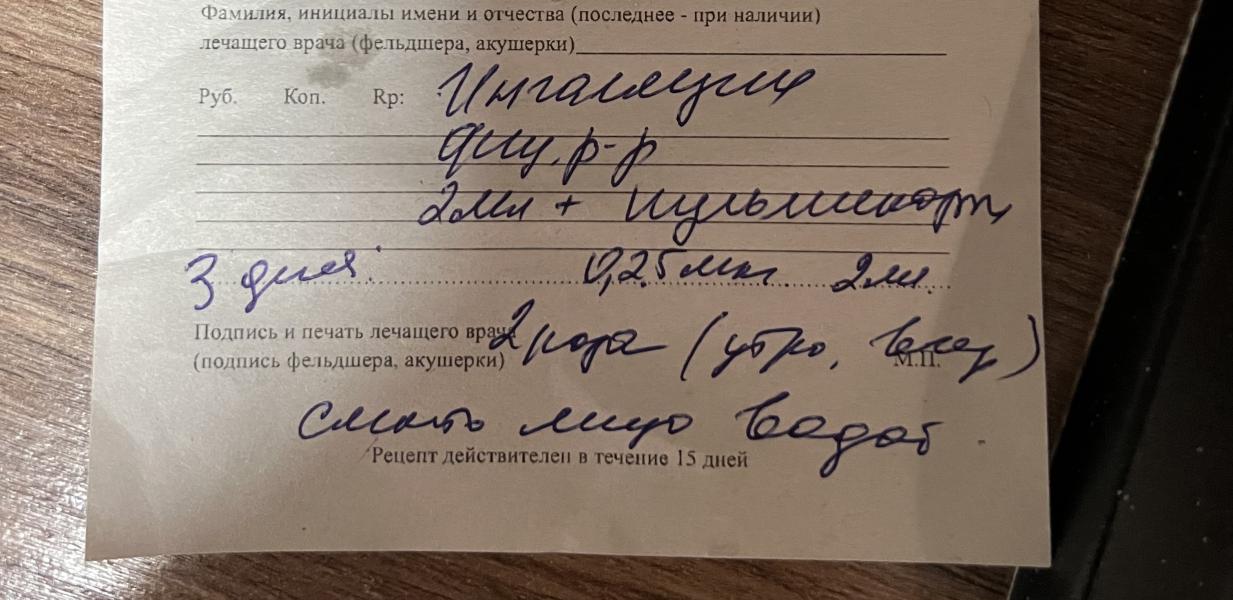 Фамилия, инициалы имени и отчества (последнее - при наличии)
лечащего врача (фельдшера, акушерки)
Руб. Коп. Rp: Ингаляции
физ. р-р
2 мл + пульмикорт
3 дня. 0,25 мкг 2 мл.
Подпись и печать лечащего врача 2 раза (утро, вечер)
(подпись фельдшера, акушерки) М.П.
смыть лицо водой
Рецепт действителен в течение 15 дней